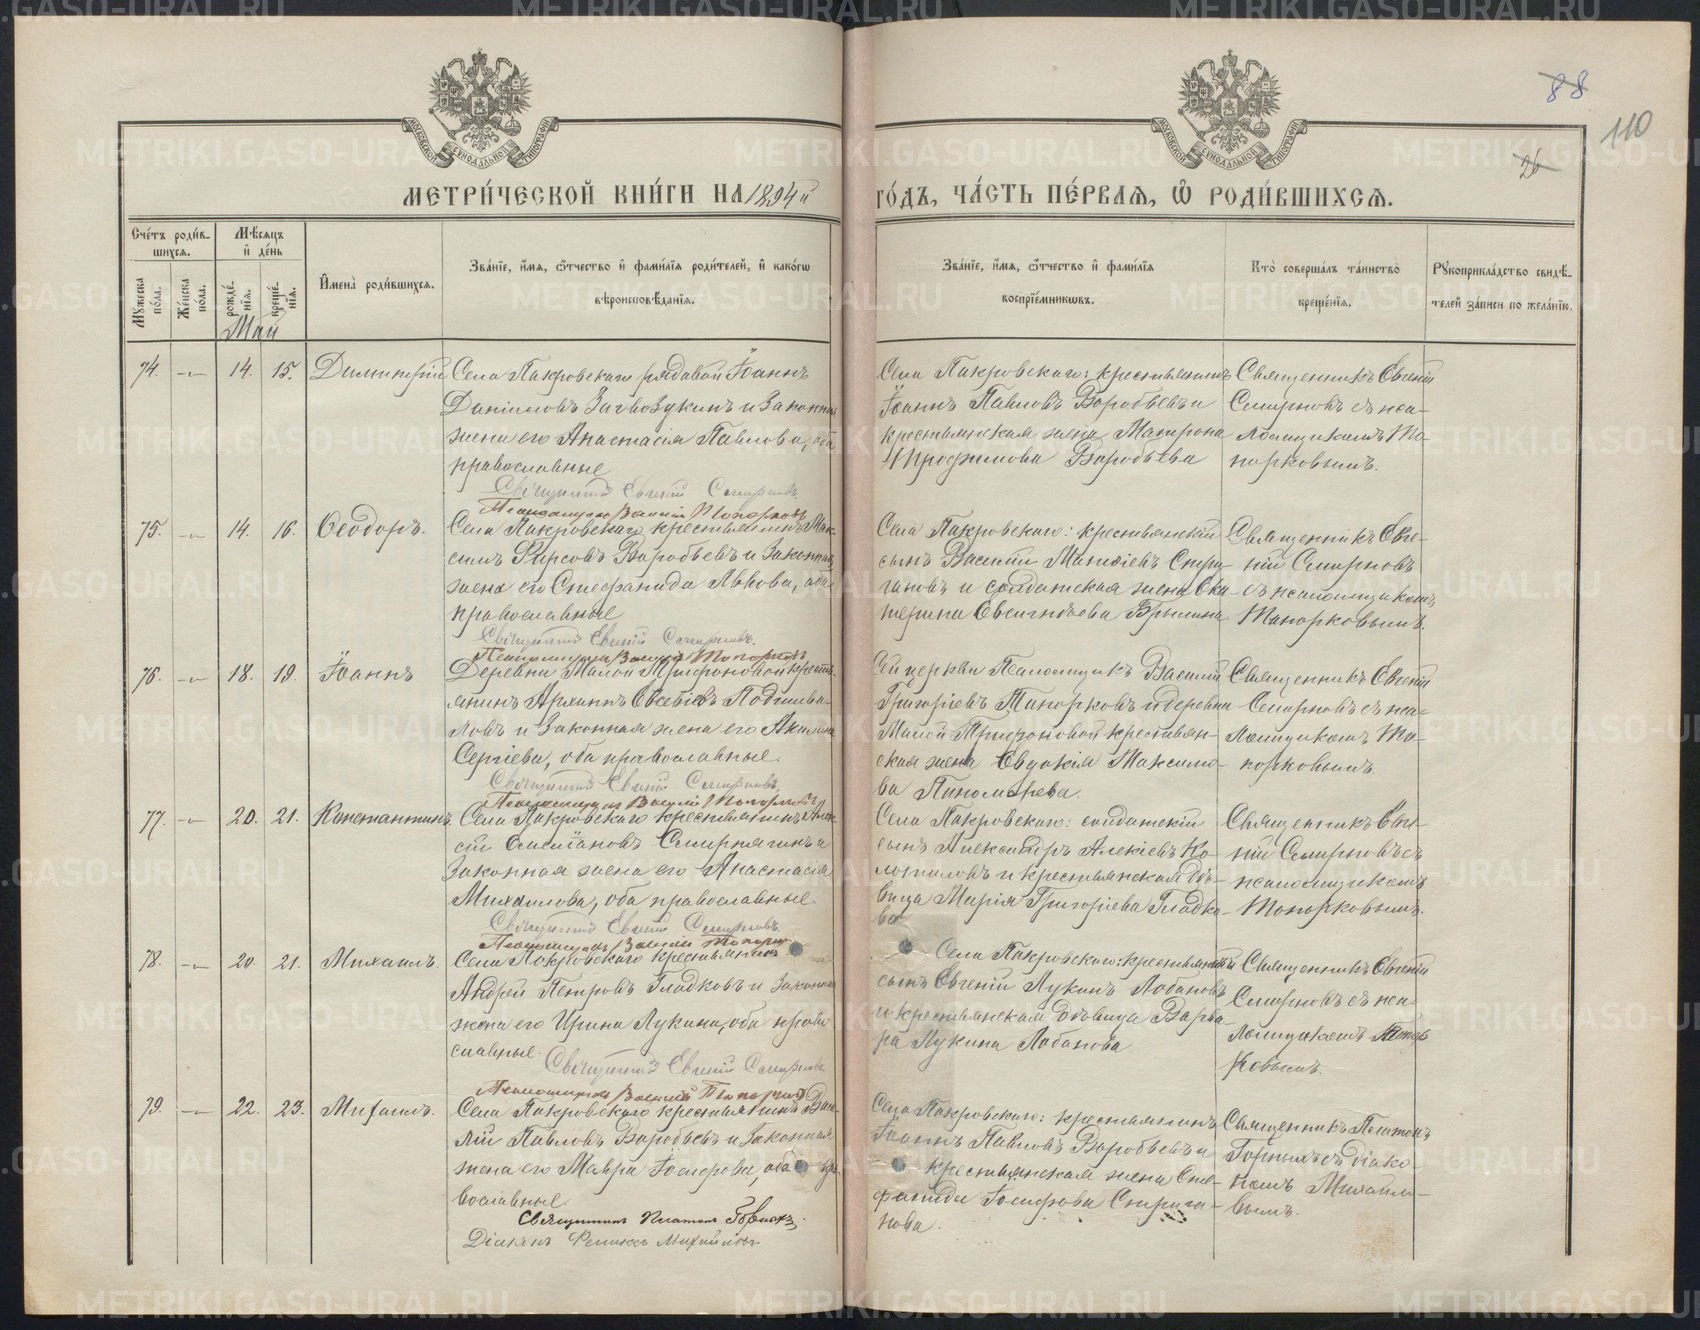 88
110
26
МОСКОВСКОЙ СѴНОДАЛЬНОЙ ТИПОГРАФІИ
МОСКОВСКОЙ СѴНОДАЛЬНОЙ ТИПОГРАФІИ
МЕТРИ́ЧЕСКОЙ КНИ́ГИ НА 1894й
ГО́ДЪ, ЧА́СТЬ ПЕ́РВАѦ, Ѿ РОДИ́ВШИХСѦ.
Сче́тъ роди́в-
шихсѧ.
Му́жеска по́ла.
Же́нска по́ла.
Мѣ́сѧцъ
и̂ де́нь
рожде́нїѧ.
креще́нїѧ.
И̂мена̀ роди́вшихсѧ.
Зва́нїе, и́мѧ, ѻ́тчество и̂ фами́лїѧ роди́телей, и̂ како́гѡ
вѣроисповѣ́данїѧ.
Зва́нїе, и́мѧ, ѻ́тчество и̂ фами́лїѧ
воспрїе́мникѡвъ.
Кто̀ соверша́лъ та́инство
креще́нїѧ.
Рꙋкоприкла́дство свидѣ́-
телей за́писи по жела́нїю.
Май
74. 14. 15. Димитрій
Села Покровскаго рядовой Іоаннъ
Даніиловъ Загвозкинъ и законная
жена его Анастасія Павлова, оба
православные
Священникъ Евгеній Смирновъ.
Псаломщикъ Василій Топорковъ
Села Покровскаго: крестьянинъ
Іоаннъ Павловъ Воробьевъ и
крестьянская жена Матрона
Трофимова Воробьева
Священникъ Евгеній
Смирновъ съ пса-
ломщикомъ То-
порковымъ.
75. 14. 16. Ѳеодоръ.
Села Покровскаго крестьянинъ Мак-
симъ Фирсовъ Воробьевъ и законная
жена его Стефанида Львова, оба
православные
Священникъ Евгеній Смирновъ.
Псаломщикъ Василій Топорковъ
Села Покровскаго: крестьянскій
сынъ Василій
и солдатская жена Ека-
терина
Священникъ Евге-
ній Смирновъ
съ псаломщикомъ
Топорковымъ.
76. 18. 19. Іоаннъ
Деревни Малой Трифоновой кресть-
янинъ Архиппъ Евсевіевъ Подшива-
ловъ и законная жена его Акилина
Сергіева, оба православные.
Священникъ Евгеній Смирновъ.
Псаломщикъ Василій Топорковъ
Сей церкви Псаломщикъ Василій
Григоріевъ Топорковъ и деревни
Малой Трифоновой крестьян-
ская жена Евдокія Максимо-
ва Пономарева.
Священникъ Евгеній
Смирновъ съ пса-
ломщикомъ То-
порковымъ.
77. 20. 21. Константинъ.
Села Покровскаго крестьянинъ Алек-
сій Смирнягинъ и
законная жена его Анастасія
Михаилова, оба православные.
Священникъ Евгеній Смирновъ.
Псаломщикъ Василій Топорковъ
Села Покровскаго: солдатскій
сынъ Александръ Алексіевъ Ко-
и крестьянская дѣ-
вица Марія Григоріева Гладко-
ва
Священникъ Евге-
ній Смирновъ съ
псаломщикомъ
Топорковымъ.
78. 20 21. Михаилъ.
Села Покровскаго крестьянинъ
Андрей Петровъ Гладковъ и законная
жена его Ирина Лукина, оба право-
славные.
Священникъ Евгеній Смирновъ.
Псаломщикъ Василій Топорковъ
Села Покровскаго: крестьянскій
сынъ Евгеній Лукинъ Лобановъ
и крестьянская дѣвица Варва-
ра Лукина Лобанова.
Священникъ Евгеній
Смирновъ съ пса-
ломщикомъ Топор-
ковымъ.
79. 22. 23. Михаилъ.
Села Покровскаго крестьянинъ Васи-
лій Павловъ Воробьевъ и законная
жена его Мавра Іосифова, оба пра-
вославные
Священникъ Платонъ Горныхъ.
Діаконъ Михайловъ
Села Покровскаго: крестьянинъ
Іоаннъ Павловъ Воробьевъ и
крестьянская жена Сте-
фанида Іосифова
нова.
Священникъ Платонъ
Горныхъ съ діако-
номъ Михайло-
вымъ.
METRIKI.GASO-URAL.RU